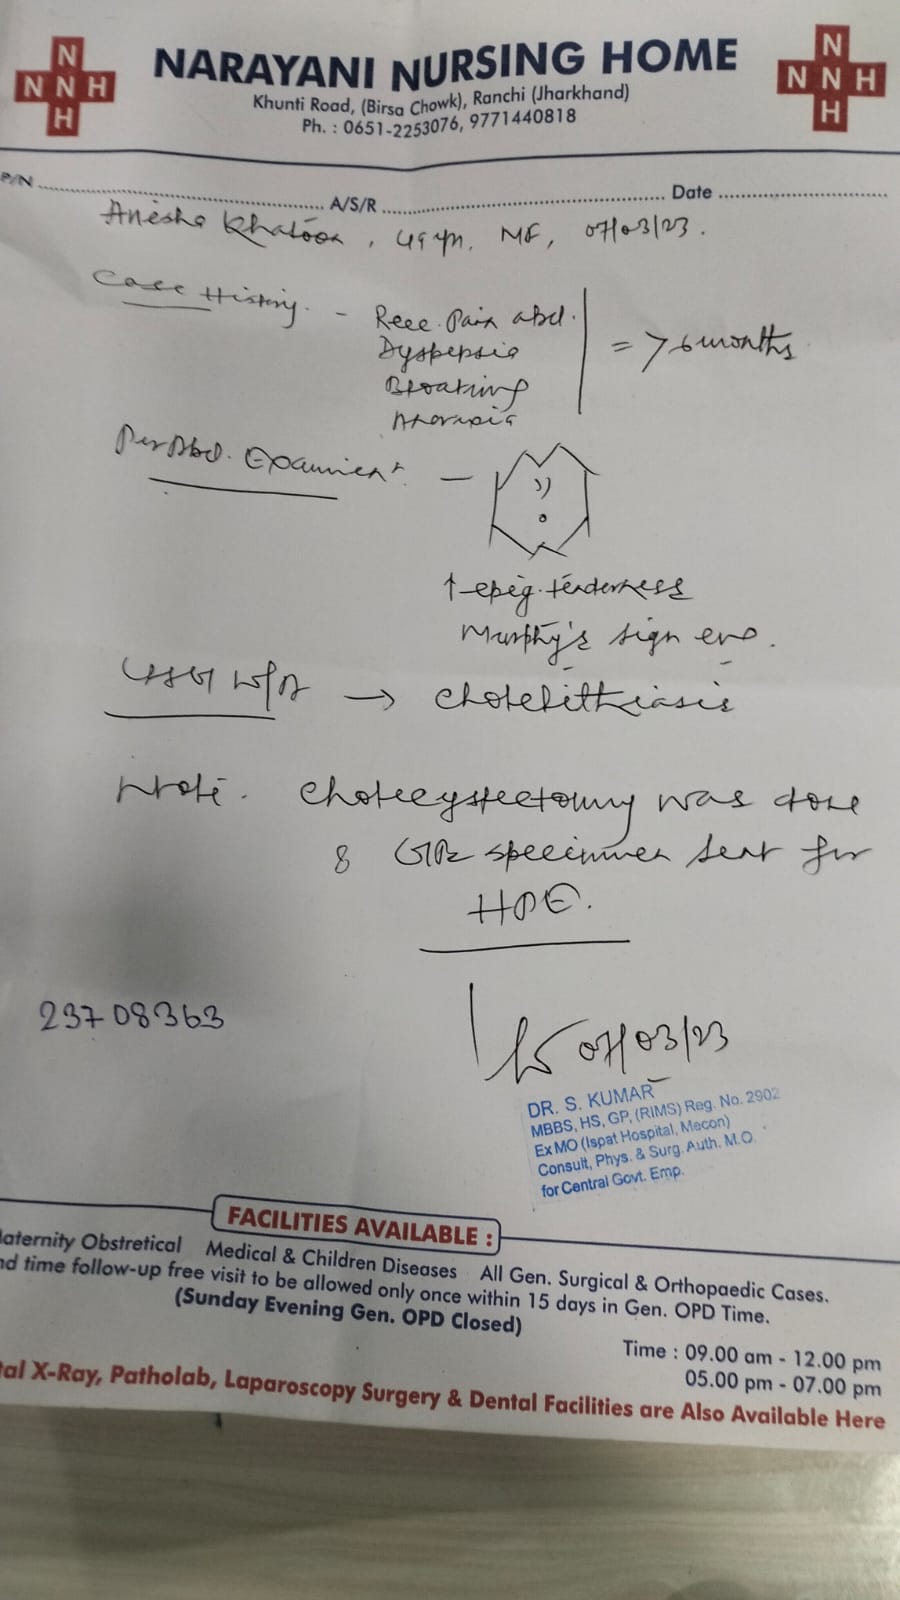 N
N N H
H
NARAYANI NURSING HOME
N
N N H
H
Khunti Road, (Birsa Chowk), Ranchi (Jharkhand)
Ph. : 0651-2253076, 9771440818
P/N ........ A/S/R ........ Date ........
Anesha Khatoon, 49 yr. MF, 07/03/23.
Case History. - Recc. Pain abd.
Dyspepsia
Bloating
Anorexia
= > 6 months
Per Abd. Examient. -
↑ epig. tenderness
Murphy's sign eve.
USG W/A → cholelithiasis
Note. cholecystectomy was done
& GB specimen sent for
HPE.
23708363
07/03/23
DR. S. KUMAR
MBBS, HS, GP, (RIMS) Reg. No. 2902
Ex MO (Ispat Hospital, Mecon)
Consult, Phys. & Surg. Auth. M.O.
for Central Govt. Emp.
FACILITIES AVAILABLE :
aternity Obstretical Medical & Children Diseases All Gen. Surgical & Orthopaedic Cases.
nd time follow-up free visit to be allowed only once within 15 days in Gen. OPD Time.
(Sunday Evening Gen. OPD Closed)
Time : 09.00 am - 12.00 pm
05.00 pm - 07.00 pm
tal X-Ray, Patholab, Laparoscopy Surgery & Dental Facilities are Also Available Here